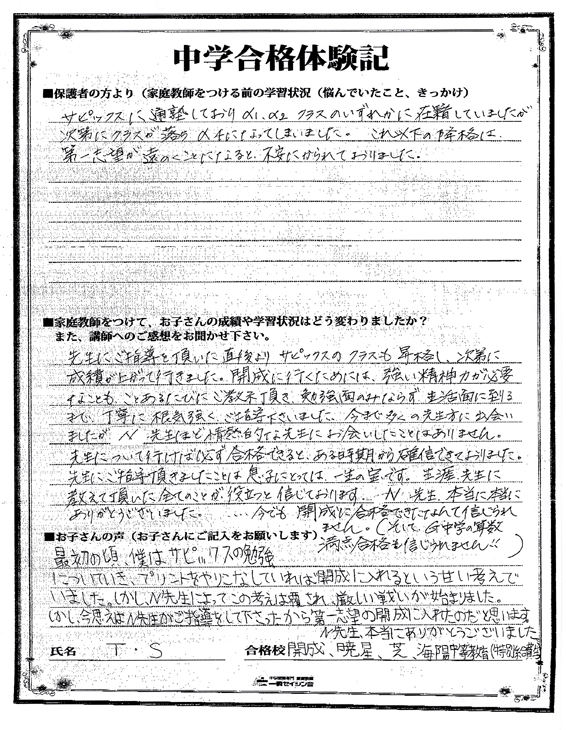 中学合格体験記
■保護者の方より(家庭教師をつける前の学習状況(悩んでいたこと、きっかけ)
サピックスに通塾しておりα1、α2 クラスのいずれかに在籍していましたが
次第にクラスが落ち α4になってしまいました。これ以下の降格は、
第一志望が遠のくことになると、不安にかられておりました。
■家庭教師をつけて、お子さんの成績や学習状況はどう変わりましたか?
また、講師へのご感想をお聞かせ下さい。
先生にご指導を頂いた直後よりサピックスのクラスも昇格し、次第に
成績が上がって行きました。開成に行くためには、強い精神力が必要
なことも、ことあるたびにご教示頂き、勉強面のみならず生活面に到る
まで、丁寧に根気強くご指導下さいました。今まで多くの先生方に出会い
ましたが N 先生ほど情熱的な先生にお会いしたことはありません。
先生について行けば必ず合格できると、ある時期から確信できておりました。
先生にご指導頂きましたことは息子にとっては、一生の宝です。生涯、先生に
教えて頂いた全てのことが役立つと信じております…N 先生、本当に本当に
ありがとうございました。……今でも開成に合格できたなんて信じられ
ません。(そしてG中学の算数
満点合格も信じられません!!)
■お子さんの声(お子さんにご記入をお願いします)
最初の頃、僕はサピックスの勉強
についていき、プリントをやりこなしていれば開成に入れるという甘い考えで
いました。しかし、N先生によってこの考えは覆され、厳しい学習が始まりました。
しかし、今思えばN先生がご指導をして下さったから第一志望の開成に入れたのだと思います
N先生、本当にありがとうございました
氏名 T・S 合格校 開成、暁星、芝、海陽中等教育(特別給費生)
一橋セイシン会